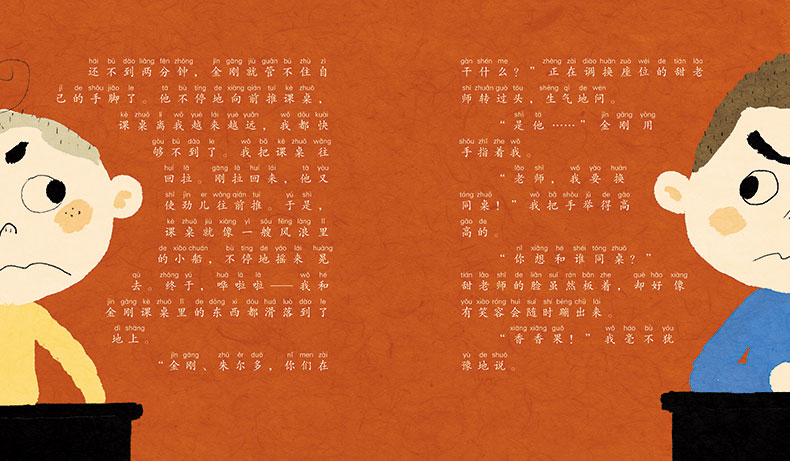 hái bú dào liǎng fēn zhōng jīn gāng jiù guǎn bú zhù zì
还不到两分钟，金刚就管不住自
jǐ de shǒu jiǎo le tā bù tíng de xiàng qián tuī kè zhuō
己的手脚了。他不停地向前推课桌，
kè zhuō lí wǒ yuè lái yuè yuǎn wǒ dōu kuài
课桌离我越来越远，我都快
gòu bú dào le wǒ bǎ kè zhuō wǎng
够不到了。我把课桌往
huí lā gāng lā huí lái tā yòu
回拉。刚拉回来，他又
shǐ jìn er wǎng qián tuī yú shì
使劲儿往前推。于是，
kè zhuō jiù xiàng yì sōu fēng làng lǐ
课桌就像一艘风浪里
de xiǎo chuán bù tíng de yáo lái huàng
的小船，不停地摇来晃
qù zhōng yú huā lā lā wǒ hé
去。终于，哗啦啦——我和
jīn gāng kè zhuō lǐ de dōng xi dōu huá luò dào le
金刚课桌里的东西都滑落到了
dì shàng
地上。
jīn gāng zhū ěr duō nǐ men zài
“金刚、朱尔多，你们在
gàn shén me zhèng zài diào huàn zuò wèi de tián lǎo
干什么？”正在调换座位的甜老
shī zhuǎn guò tóu shēng qì de wèn
师转过头，生气地问。
shì tā jīn gāng yòng
“是他……”金刚用
shǒu zhǐ zhe wǒ
手指着我。
lǎo shī wǒ yào huàn
“老师，我要换
tóng zhuō wǒ bǎ shǒu jǔ de gāo
同桌！”我把手举得高
gāo de
高的。
nǐ xiǎng hé shéi tóng zhuō
“你想和谁同桌？”
tián lǎo shī de liǎn suī rán bǎn zhe què hǎo xiàng
甜老师的脸虽然板着，却好像
yǒu xiào róng huì suí shí bèng chū lái
有笑容会随时蹦出来。
xiāng xiāng guǒ wǒ háo bù yóu
“香香果！”我毫不犹
yù de shuō
豫地说。